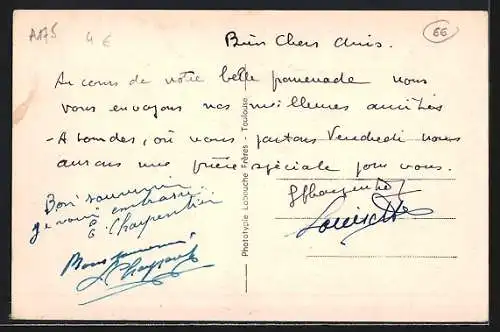 A175
4 €
66
Bien Chers Amis.
Au cours de notre belle promenade nous
vous envoyons nos meilleures amitiés
- A Lourdes, où nous partons Vendredi nous
aurons une prière spéciale pour vous.
Bon souvenir
je vous embrasse
G Charpentier
Louisette
Bons souvenirs
Phototypie Labouche Frères - Toulouse